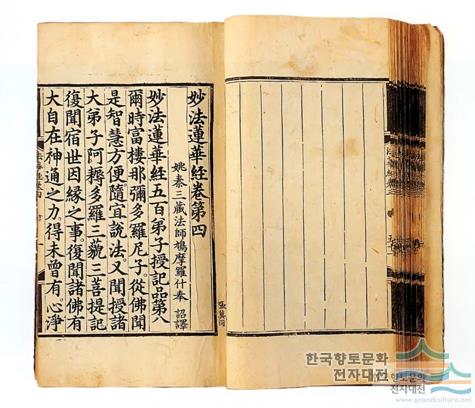 妙法蓮華經卷第四
姚秦三藏法師鳩摩羅什奉 詔譯
妙法蓮華經五百弟子授記品第八
爾時富樓那彌多羅尼子。從佛聞
是智慧方便隨宜說法。又聞授諸
大弟子阿耨多羅三藐三菩提記
復聞宿世因緣之事。復聞諸佛有
大自在神通之力。得未曾有。心淨
한국향토문화
전자대전
전자대전
www.grandculture.net